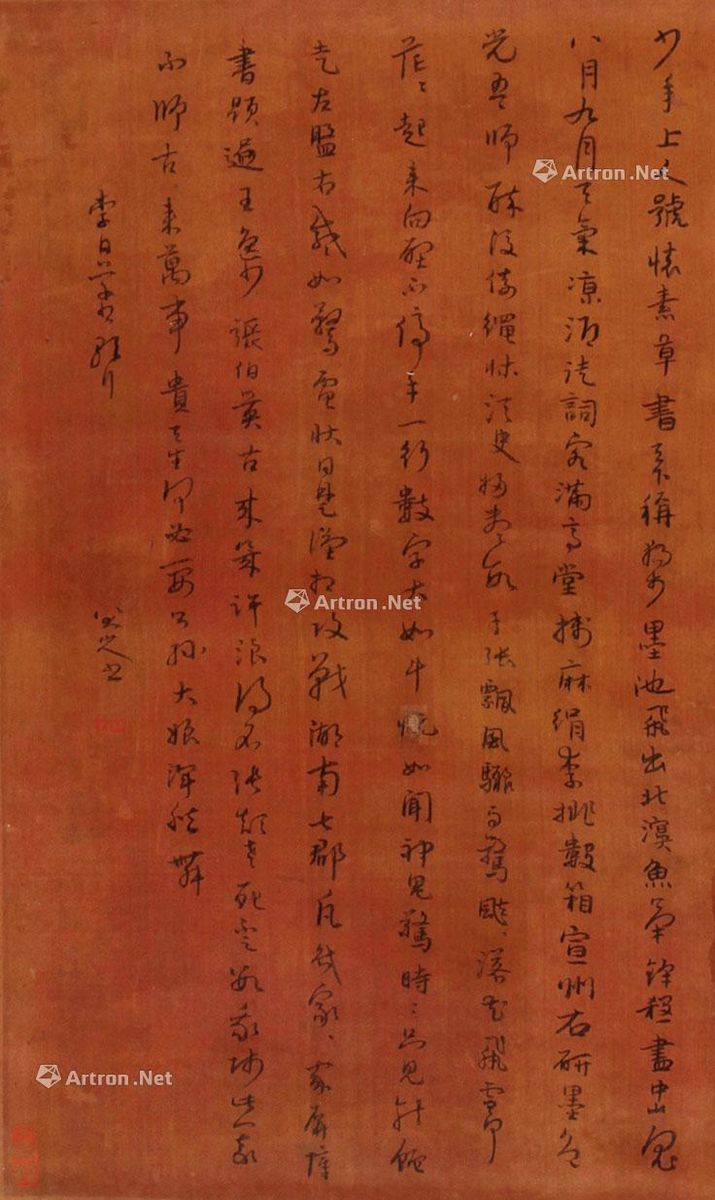 少年上人號懷素草書天下稱獨步墨池飛出北溟魚筆鋒殺盡中山兔
八月九月天氣涼酒徒詞客滿高堂箋麻絹素排數箱宣州石研墨色
光吾師醉後倚繩床須臾掃盡數千張飄風驟雨驚颯、落花飛雪何
茫、起來向壁不停手一行數字大如斗恍如聞神鬼驚時、只見龍蛇
走左盤右蹙如驚電狀同楚漢相攻戰湖南七郡凡幾家、家屏障
書題遍王逸少張伯英古來幾許浪得名張顛老死不足數我師此義
不師古、來萬事貴天生何必要公孫大娘渾脫舞
李白草書歌行
Artron.Net
Artron.Net
Artron.Net